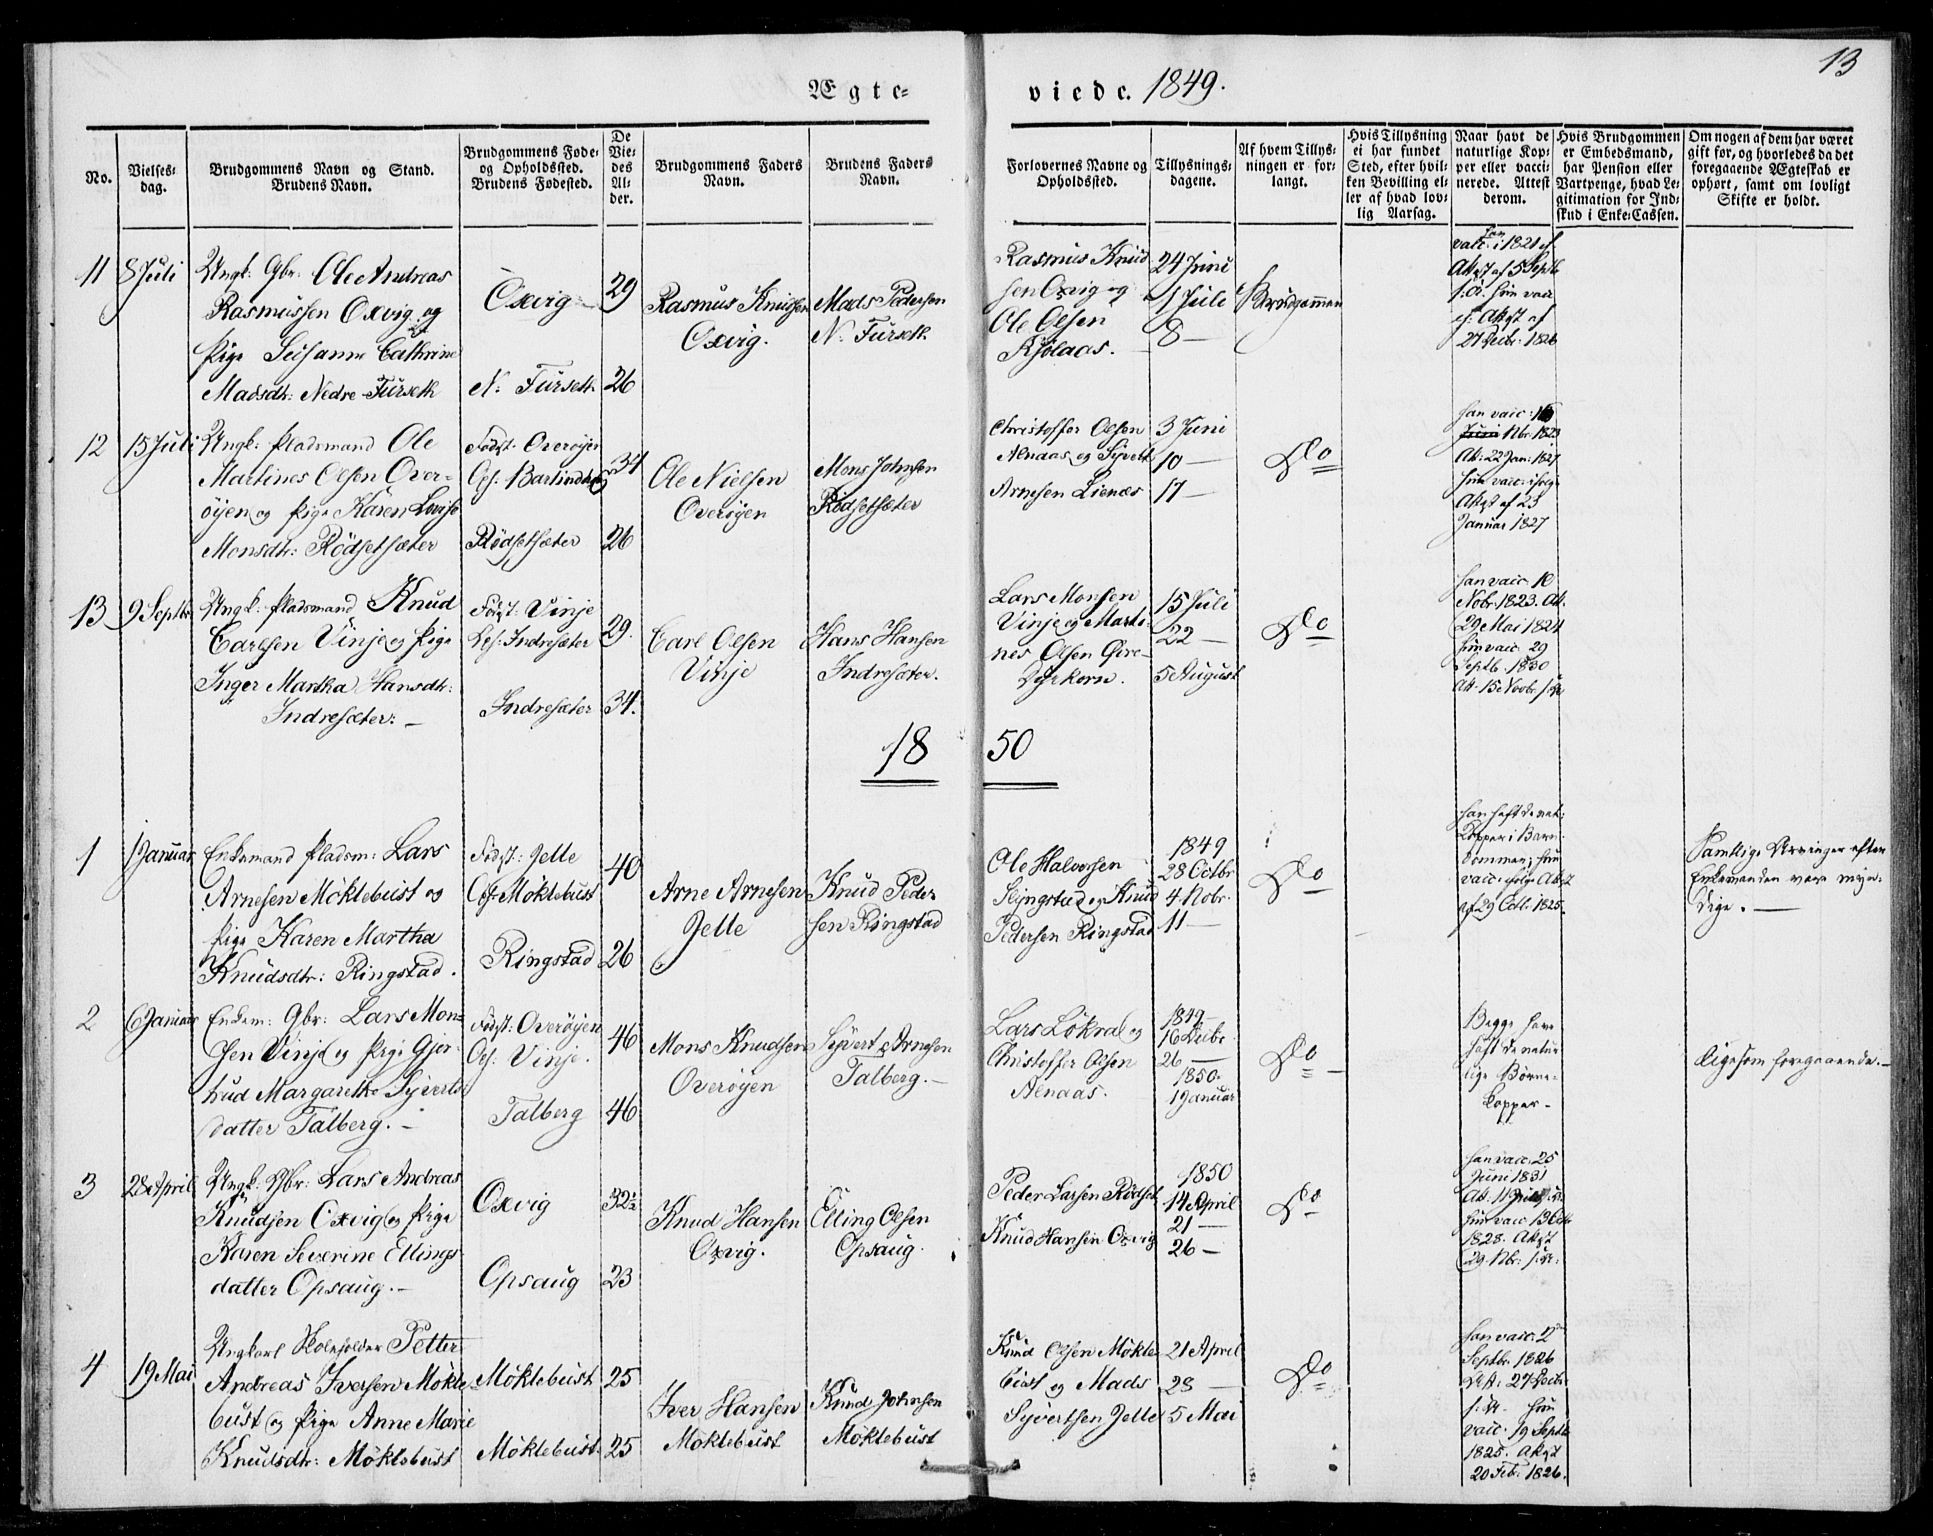 13
Ægte-
viede. 1849.
No.
Vielses-
dag.
Brudgommens Navn og Stand.
Brudens Navn.
Brudgommens Føde-
og Opholdssted.
Brudens Fødested.
De
Vie-
des
Al-
der.
Brudgommens Faders
Navn.
Brudens Faders
Navn.
Forlovernes Navne og
Opholdssted.
Tillysnings-
dagene.
Af hvem Tillys-
ningen er for-
langt.
Hvis Tillysning
ei har fundet
Sted, efter hvil-
ken Bevilling el-
ler af hvad lov-
lig Aarsag.
Naar havt de
naturlige Kop-
per eller vacci-
nerede. Attest
derom.
Hvis Brudgommen
er Embedsmand,
har Pension eller
Vartpenge, hvad Le-
gitimation for Ind-
skud i Enke-Cassen.
Om nogen af dem har været
gift før, og hvorledes da det
foregaaende Ægteskab er
ophørt, samt om lovligt
Skifte er holdt.
11
8 Juli
Ungk: Gbr: Ole Andreas
Rasmussen Oxvig og
Pige Susanne Cathrine
Madsdtr: Nedre-Furseth
Oxvig
N. Furseth
29
26
Rasmus Knudsen
Oxvig.
Mads Pedersen
N. Furseth
Rasmus Knud
sen Oxvig og
Ole Olsen
Kjølaas.
24 Juni
1 Juli
8 —
Brudgommen
han
vacc. i 1821 ef
Attest af 5 Septb
s. A. hun vacc
ef: Attst af
27 Decbr. 1826
12
15 Juli
Ungk: Pladsmand Ole
Martines Olsen Over-
øyen og Pige Karen Lovise
Monsdtr: Rødsetsæter
Født: Overøyen
Ops:
Rødsetsæter
34
26
Ole Nielsen
Overøyen
Mons Johnsen
Rødsetsæter
Christoffer Olsen
Alnaas og Syvert
Arnesen Lienæs
3 Juni
10 —
17 —
Do
han vacc:
Nbr. 1823
Att: 22 Jan: 1827
hun vacc: ifølge
Attst af 23
Januar 1827
13
9 Septbr
Ungk: Pladsmand Knud
Carlsen Vinje og Pige
Inger Martha Hansdtr:
Indresæter. —
Født: Vinje
Ops: Indresæter
Indresæter
29.
34.
Carl Olsen
Vinje
Hans Hansen
Indresæter.
Lars Monsen
Vinje og Marti-
nes Olsen Øvre-
Dyrkorn.
15 Juli
22 —
5 August
Do
han vacc. 10
Nobr: 1823. Att.
29 Mai 1824
hun vacc. 29
Septb. 1830
Att. 15 Novbr. s. A.
18 50
1
1 Januar
Enkemand Pladsm: Lars
Arnesen Møklebust og
Pige Karen Martha
Knudsdtr: Ringstad.
Født: Jelle
Ops: Møklebust
Ringstad
40
26
Arne Arnesen
Jelle
Knud Peder
sen Ringstad
Ole Halvorsen
Ryngstad og Knud
Pedersen Ringstad
1849
28 Octbr
4 Nobr.
11 —
Do
han haft de nat:
Kopper i Barn-
dommen; hun
vacc: ifølge Attst
af 29 Octb. 1825.
Samtlige Arvinger efter
Enkemanden vare myn-
dige. —
2
6 Januar
Enkem: Gbr: Lars Mon-
sen Vinje og Pige Gjer-
trud Margarethe Syverts
datter Talberg. —
Født: Overøyen
Ops: Vinje.
Talberg
46
46
Mons Knudsen
Overøyen
Syvert Arnesen
Talberg. —
Lars Løkvol og
Christoffer Olsen
Alnaas.
1849
16 Decbr.
26 —
1850.
1 Januar
Do
Begge have
haft de natur
lige Børne-
kopper —
Ligesom foregaaende. —
3
28 April
Ungk: Gbr: Lars Andreas
Knudsen Oxvig og Pige
Karen Severine Ellings
datter Opsaug. —
Oxvig
Opsaug
32½
23
Knud Hansen
Oxvig.
Elling Olsen
Opsaug.
Peder Larsen Rødset
Knud Hansen Oxvig
1850
14 April
21 —
26 —
Do
han vacc: 25
Juni 1831
Att. 11 Juli s. A.
hun vacc 13 Octb
1828. Attst
29 Nbr: s. A.
4
19 Mai
Ungkarl Skoleholder Petter
Andreas Iversen Møkle
bust og Pige Anne Marie
Knudsdtr: Møklebust
Møklebust
Møklebust
25
25
Iver Hansen
Møklebust
Knud Johnsen
Møklebust
Knud Olsen Møkle
bust og Mads
Syvertsen Jelle
21 April
28 —
5 Mai
Do
han vacc. 2
Septbr. 1826
Att: 27 Decbr
s. A. hun
vacc. 19 Septb
1825. Attst
20 Feb. 1826.